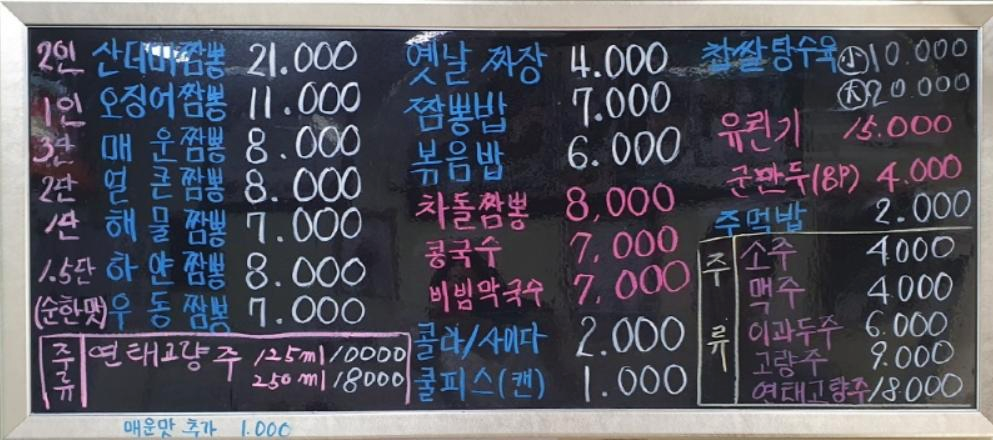 2인 산더미짬뽕 21.000
1인 오징어짬뽕 11.000
3단 매운짬뽕 8.000
2단 얼큰짬뽕 8.000
1단 해물짬뽕 7.000
1.5단 하얀짬뽕 8.000
(순한맛) 우동짬뽕 7.000
주류
연태고량주 125ml 10000
250ml 18000
옛날 짜장 4.000
짬뽕밥 7.000
볶음밥 6.000
차돌짬뽕 8,000
콩국수 7,000
비빔막국수 7,000
콜라/사이다 2.000
쿨피스(캔) 1.000
찹쌀탕수육 小 10.000
大 20.000
유린기 15.000
군만두(8P) 4.000
주먹밥 2.000
주류
소주 4.000
맥주 4.000
이과두주 6.000
고량주 9.000
연태고량주 18.000
매운맛 추가 1.000